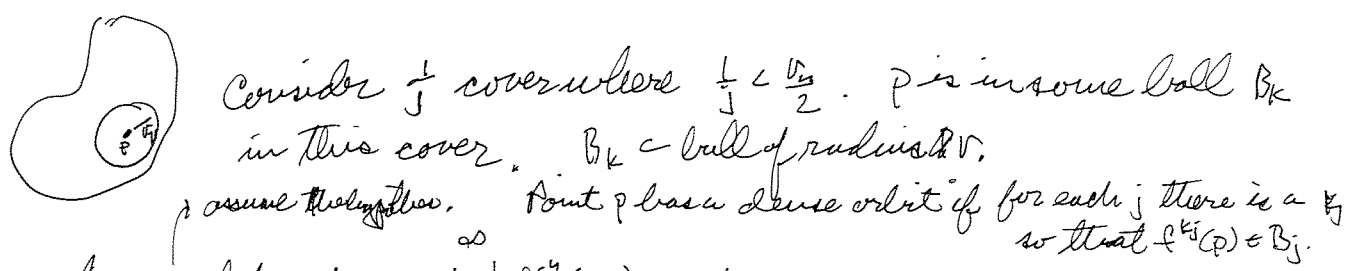 Consider 1/j cover where 1/j < r/2. p is in some ball B_K
in this cover. B_K ⊂ ball of radius r.
assume the Point p has a dense orbit if for each j there is a k_j
so that f^{k_j}(p) ∈ B_j.